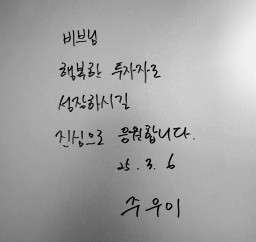 비브님
행복한 투자자로
성장하시길
진심으로 응원합니다.
25. 3. 6
주우이